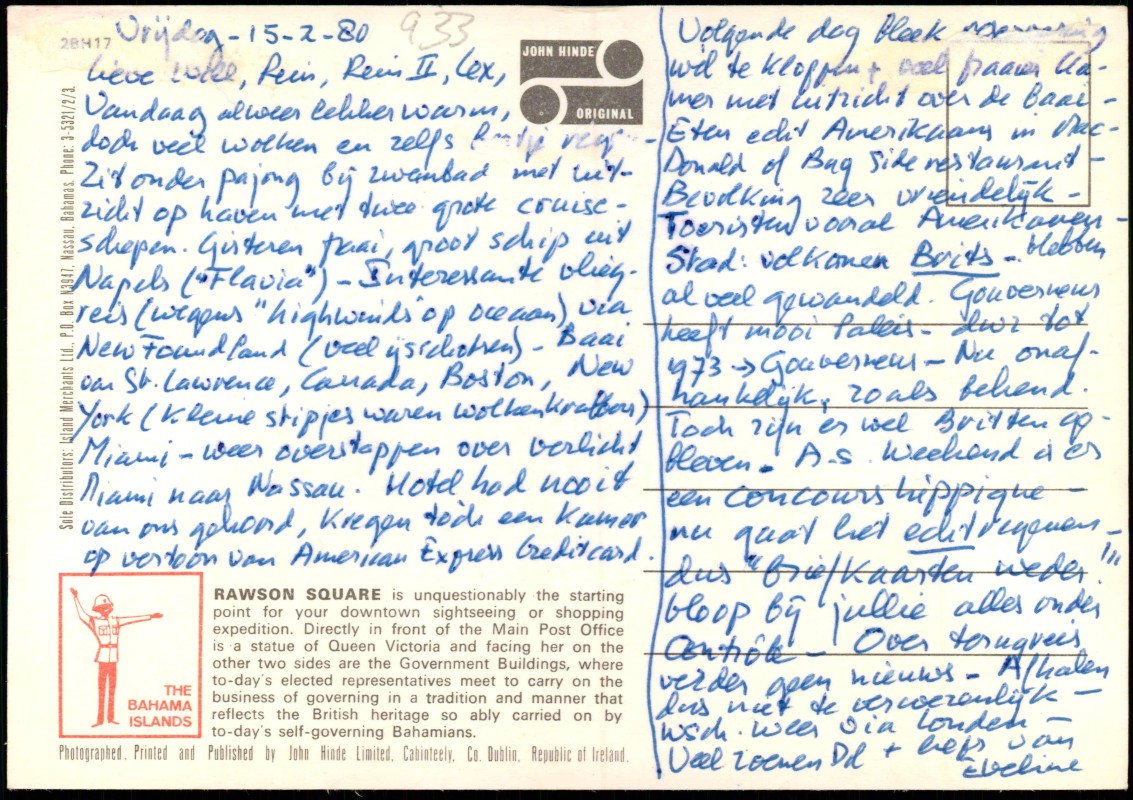 2BH17
933
Vrijdag - 15-2-80
Lieve Rein, Rein II, Lex,
Vandaag alweer lekker warm,
doch veel wolken en zelfs
Zit onder pajong bij zwembad met uit-
zicht op haven met twee grote cruise-
schepen. Gisteren fraai, groot schip uit
Napels ("Flavia") - Interessante vlieg-
reis (wegens "highwinds" op oceaan) via
New Foundland (veel ijsschotsen) - Baai
van St. Lawrence, Canada, Boston, New
York (kleine stipjes waren wolkenkrabbers)
Miami - weer overstappen over verlicht
Miami naar Nassau. Hotel had nooit
van ons gehoord, kregen tóch een kamer
op vertoon van American Express Creditcard.
JOHN HINDE
ORIGINAL
Sole Distributors: Island Merchants Ltd., P.O. Box N3947, Nassau, Bahamas. Phone: 3-5321/2/3.
THE
BAHAMA
ISLANDS
RAWSON SQUARE is unquestionably the starting
point for your downtown sightseeing or shopping
expedition. Directly in front of the Main Post Office
is a statue of Queen Victoria and facing her on the
other two sides are the Government Buildings, where
to-day's elected representatives meet to carry on the
business of governing in a tradition and manner that
reflects the British heritage so ably carried on by
to-day's self-governing Bahamians.
Photographed, Printed and Published by John Hinde Limited, Cabinteely, Co. Dublin, Republic of Ireland.
Volgende dag bleek
wel te kloppen + fraaie ka-
mer met uitzicht over de Baai -
Eten echt Amerikaans in Mac-
Donald of Bay Side restaurant -
Bevolking zeer vriendelijk -
Toeristen vooral Amerikanen -
Stad: volkomen Brits - hebben
al veel gewandeld. Gouverneur
heeft mooi Paleis - dwz tot
1973 → Gouverneur - Nu onaf-
hankelijk, zoals bekend.
Toch zijn er wel Britten ge-
bleven. A.s. weekend is er
een concours hippique -
nu gaat het echt regenen -
dus "briefkaarten weder"!!
Hoop bij jullie alles onder
contrôle - Over terugreis
verder geen nieuws - Afhalen
dus niet te verwezenlijk -
wsch. weer via Londen -
Veel zoenen Dd + liefs van
Eveline